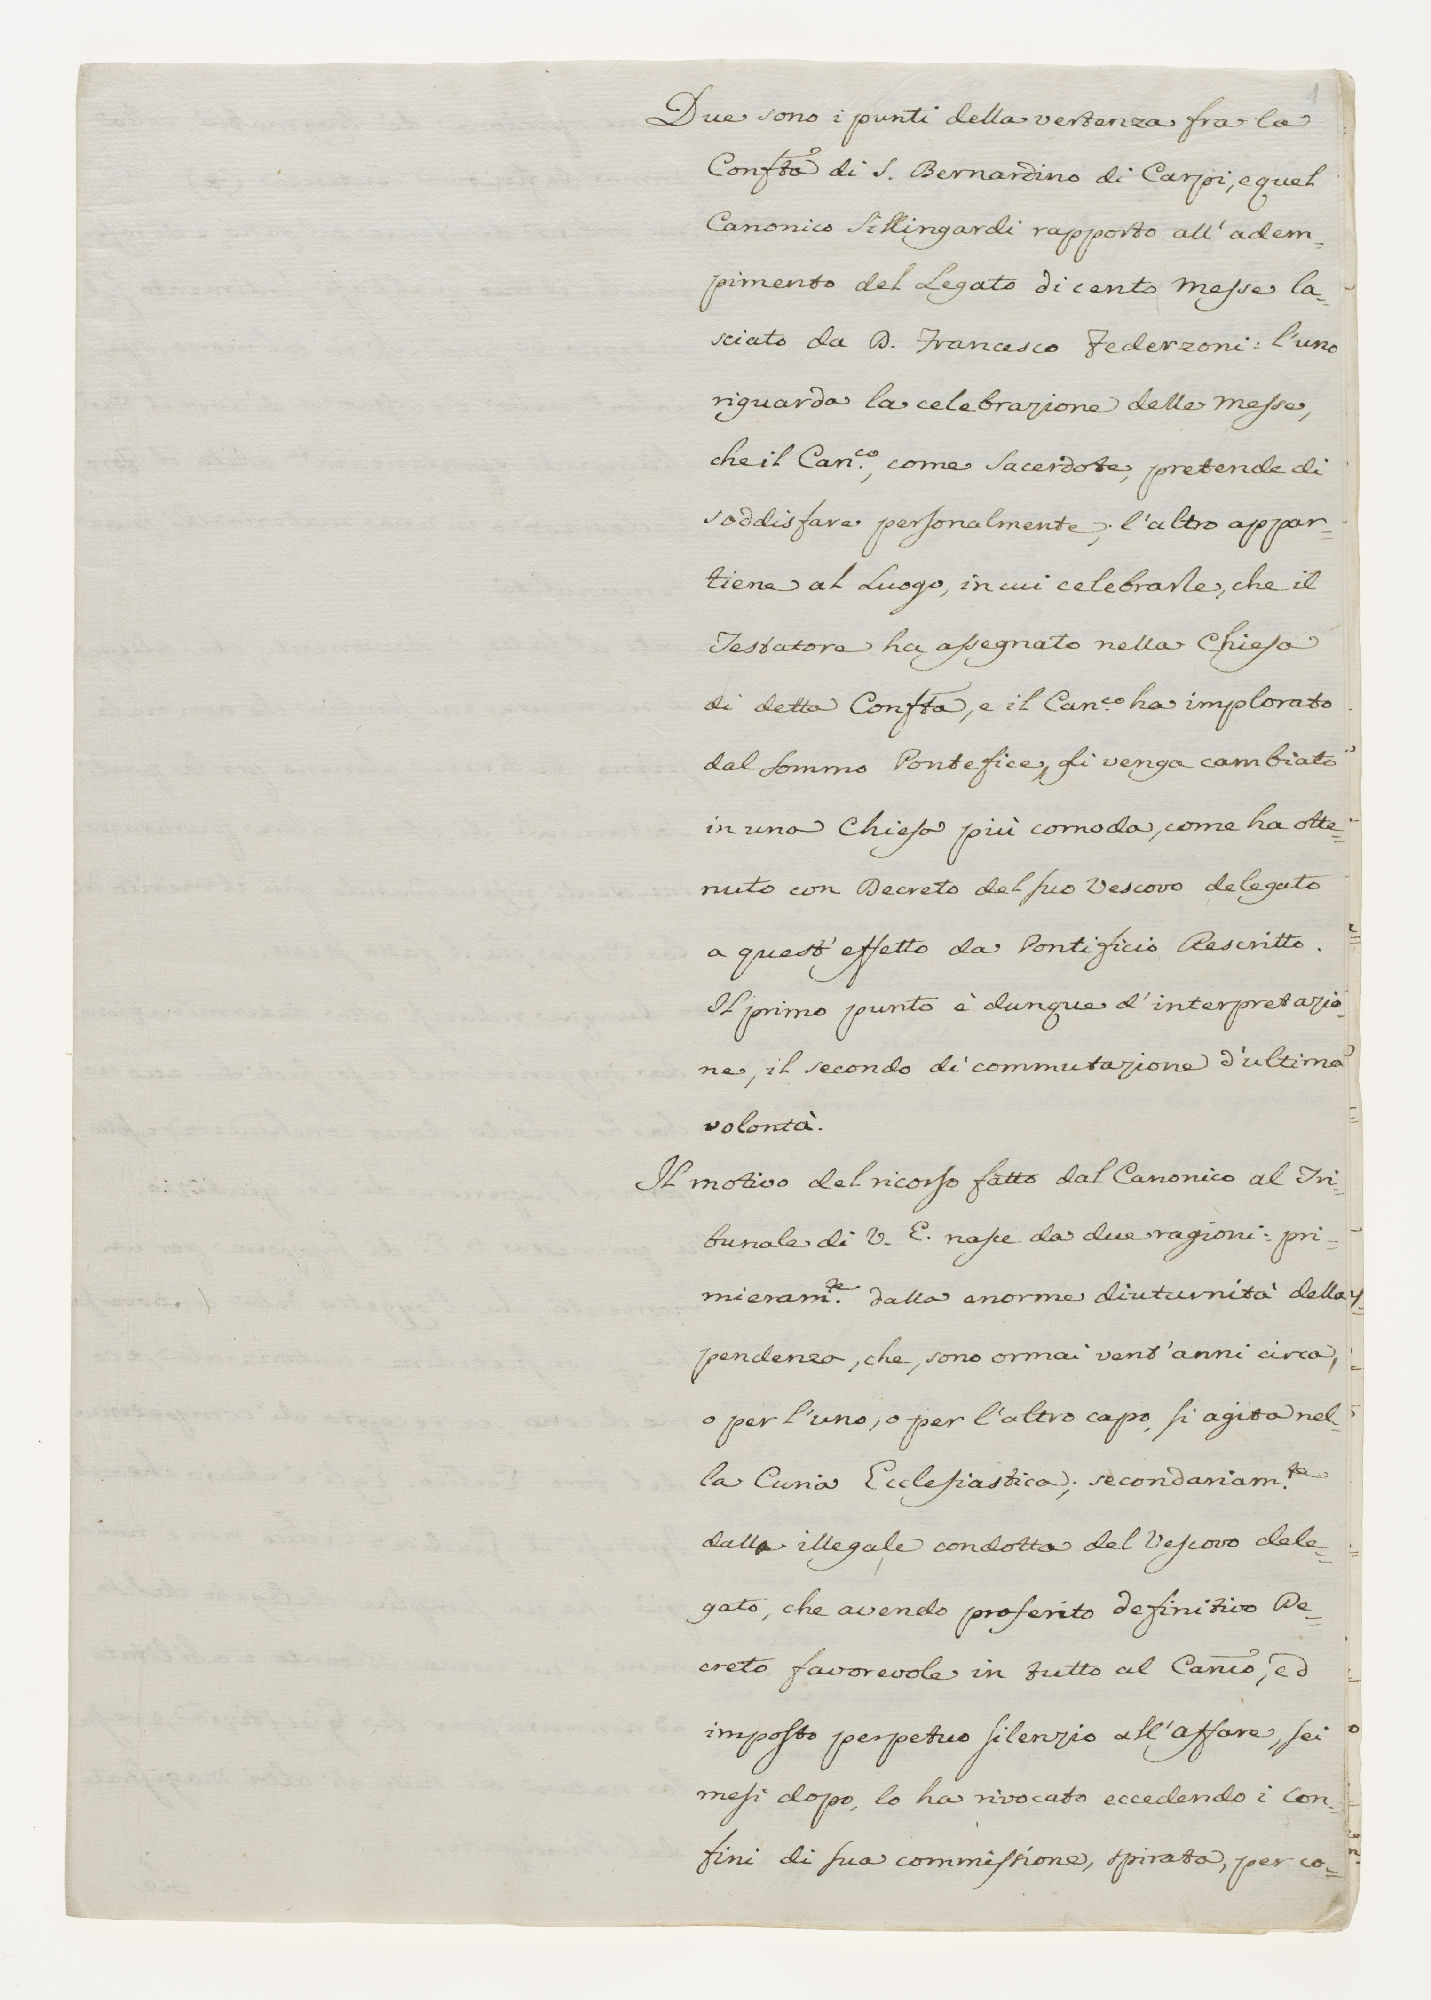 1
Due sono i punti della vertenza fra la
Confta di S. Bernardino di Carpi, e quel
Canonico Sillingardi rapporto all' adem=
pimento del Legato di cento Messe la=
sciato da D. Francesco Federzoni: l'uno
riguarda la celebrazione delle Messe,
che il Can.co, come Sacerdote, pretende di
soddisfare personalmente; l'altro appar=
tiene al Luogo, in cui celebrarle, che il
Testatore ha assegnato nella Chiesa
di detta Confta, e il Can.co ha implorato
dal Sommo Pontefice, si venga cambiato
in una Chiesa più comoda, come ha otte=
nuto con Decreto del suo Vescovo delegato
a quest' effetto da Pontificio Rescritto.
Il primo punto è dunque d' interpretazio=
ne, il secondo di commutazione d'ultima
volontà.
Il motivo del ricorso fatto dal Canonico al Tri=
bunale di V. E. nasce da due ragioni: pri=
mieram.te dalla enorme diuturnità della
pendenza, che, sono ormai vent'anni circa,
o per l'uno, o per l'altro capo, si agita nel=
la Curia Ecclesiastica; secondariam.te
dalla illegale condotta del Vescovo dele=
gato, che avendo proferito definitivo De=
creto favorevole in tutto al Canco, ed
imposto perpetuo silenzio all'Affare, sei
mesi dopo, lo ha rivocato eccedendo i con=
fini di sua commissione, spirata, per co=